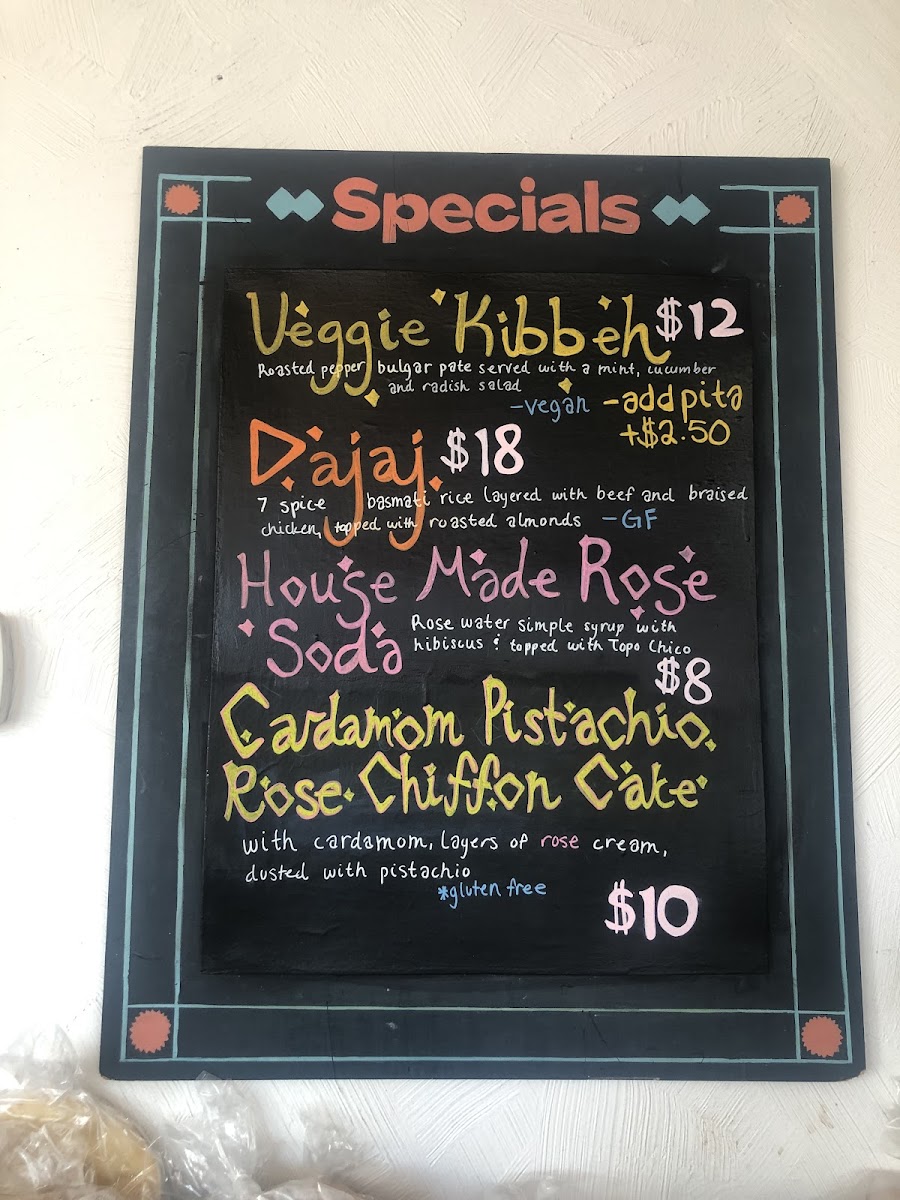 Specials
Veggie Kibbeh $12
Roasted pepper bulgar pate served with a mint, cucumber
and radish salad
-vegan -add pita
+$2.50
Dajaj $18
7 spice basmati rice layered with beef and braised
chicken, topped with roasted almonds -GF
House Made Rose
Soda
Rose water simple syrup with
hibiscus & topped with Topo Chico
$8
Cardamom Pistachio
Rose Chiffon Cake
with cardamom, layers of rose cream,
dusted with pistachio
*gluten free
$10